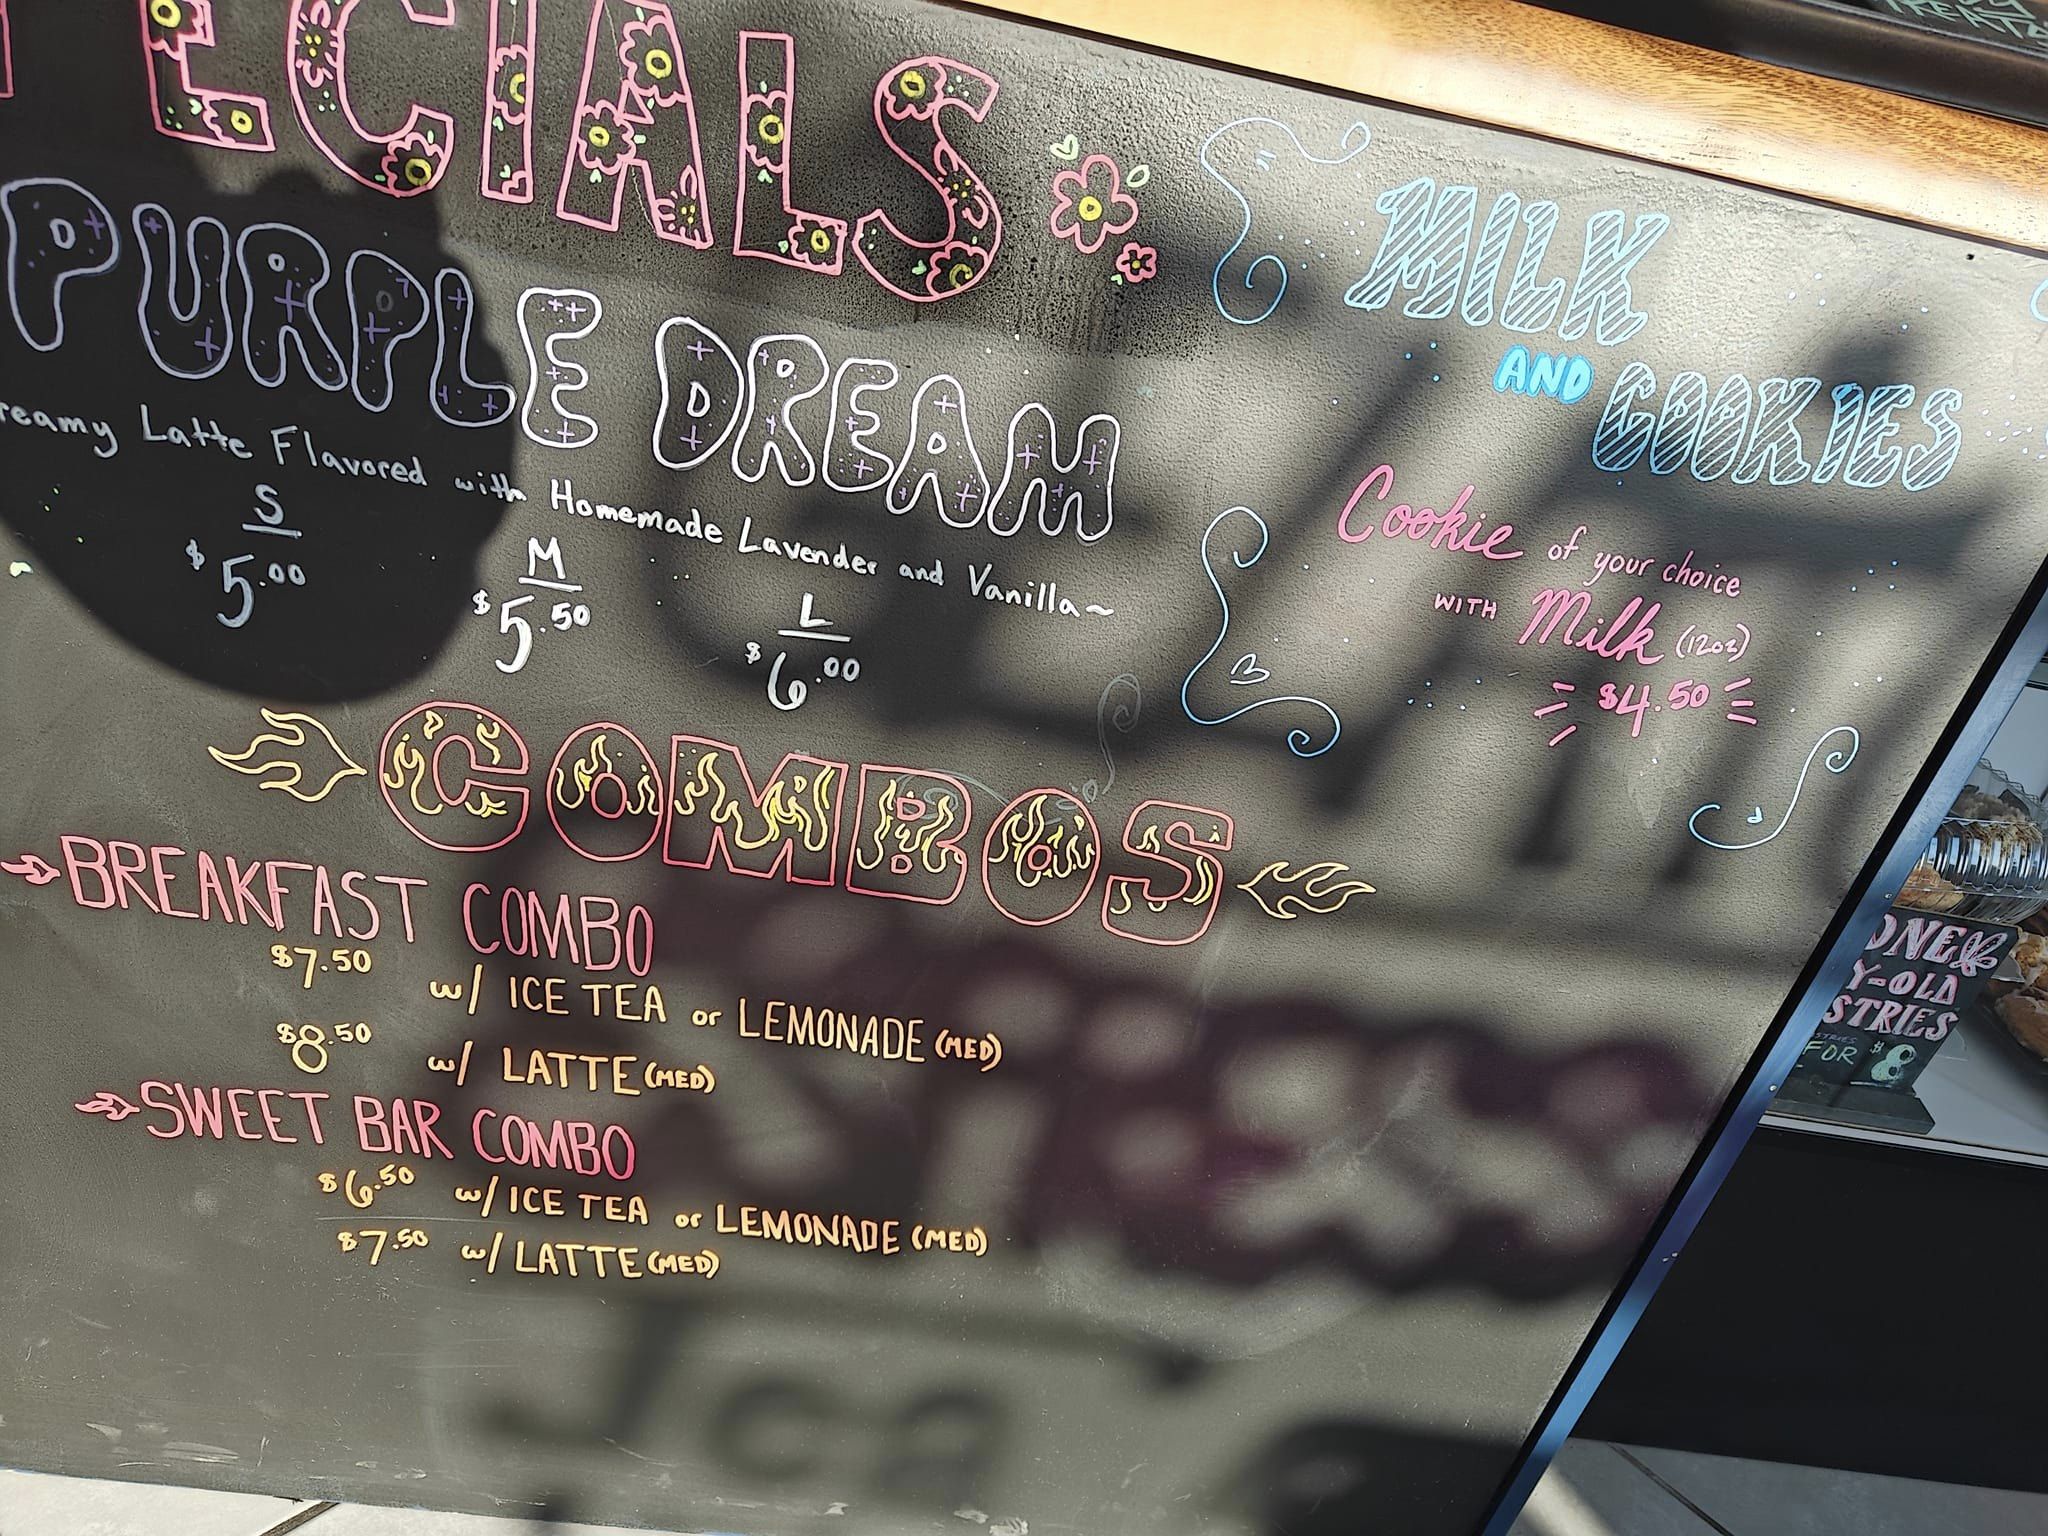 SPECIALS
PURPLE DREAM
reamy Latte Flavored with Homemade Lavender and Vanilla~
S
$5.00
M
$5.50
L
$6.00
MILK
AND
COOKIES
Cookie of your choice
WITH Milk (12oz)
$4.50
COMBOS
BREAKFAST COMBO
$7.50 w/ ICE TEA or LEMONADE (MED)
$8.50 w/ LATTE (MED)
SWEET BAR COMBO
$6.50 w/ ICE TEA or LEMONADE (MED)
$7.50 w/ LATTE (MED)
TREATS
ONE
Y-OLD
STRIES
FOR $8